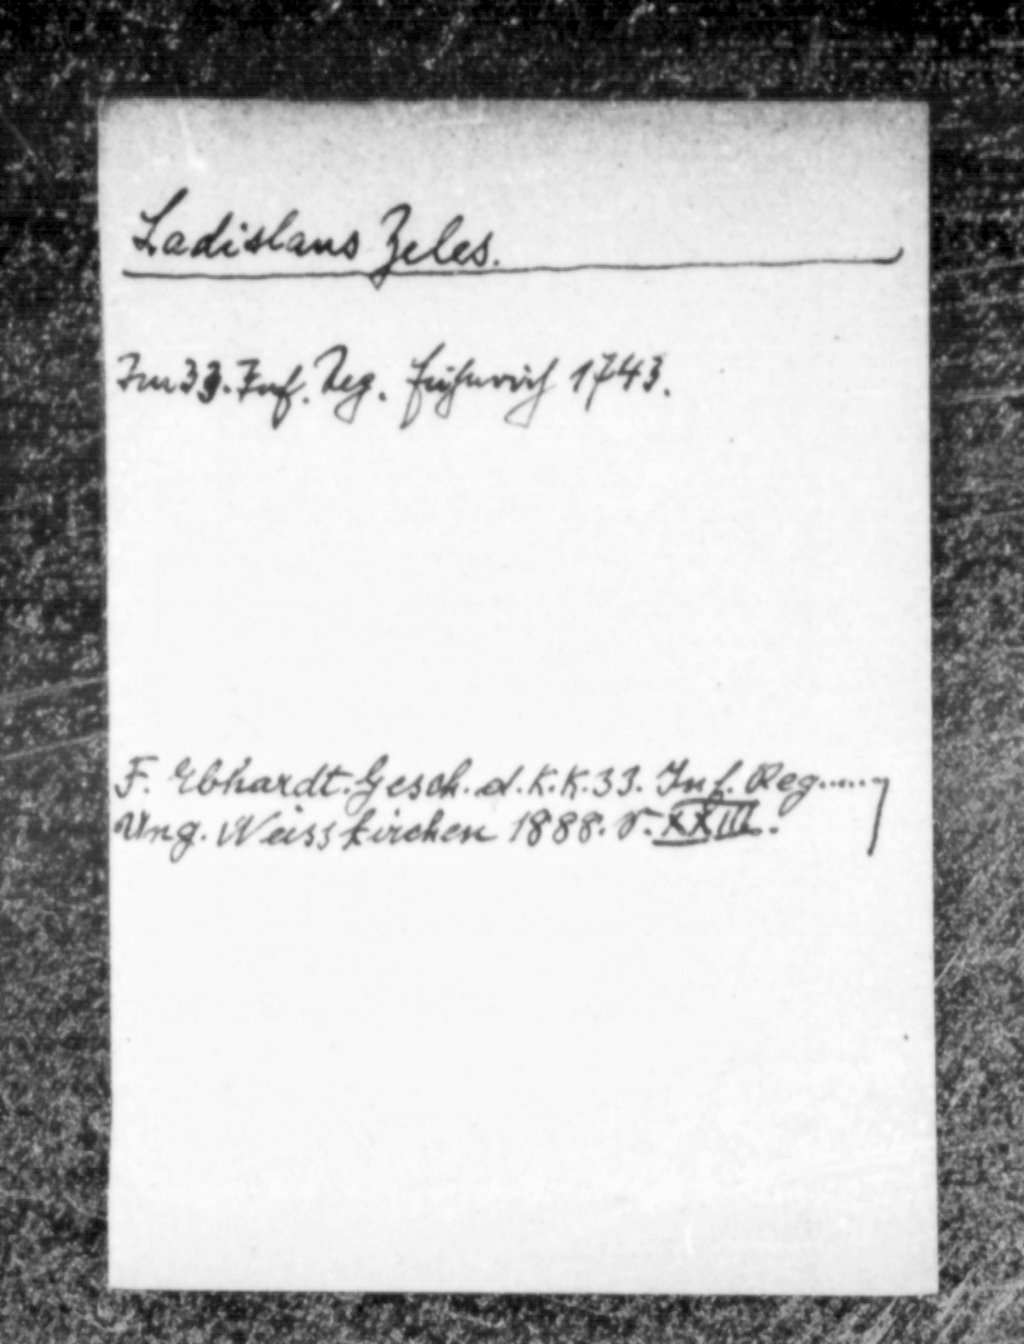 Ladislaus Zeles.
Im 33. Inf. Reg. Fähnrich 1743.
F. Ebhardt. Gesch. d. K. K. 33. Inf. Reg......
Ung. Weisskirchen 1888. S. XXIII.